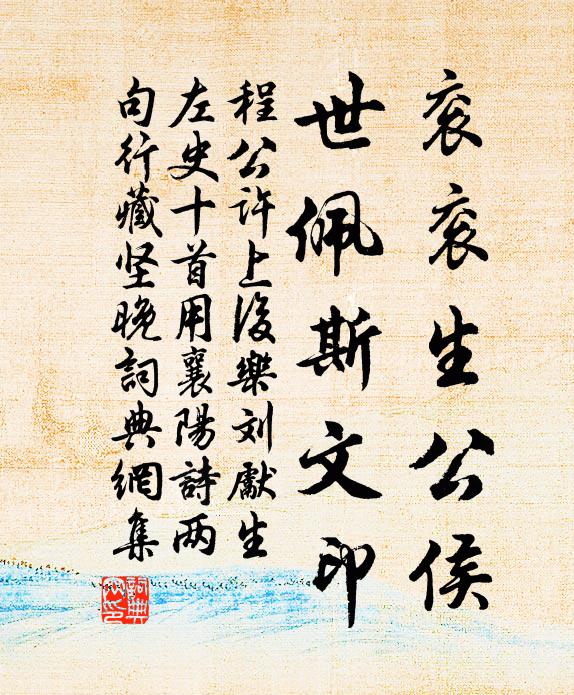 衮衮生公侯
世佩斯文印
程公许上后乐刘献生
左史十首用襄阳诗两
句行藏坚晚词典网集